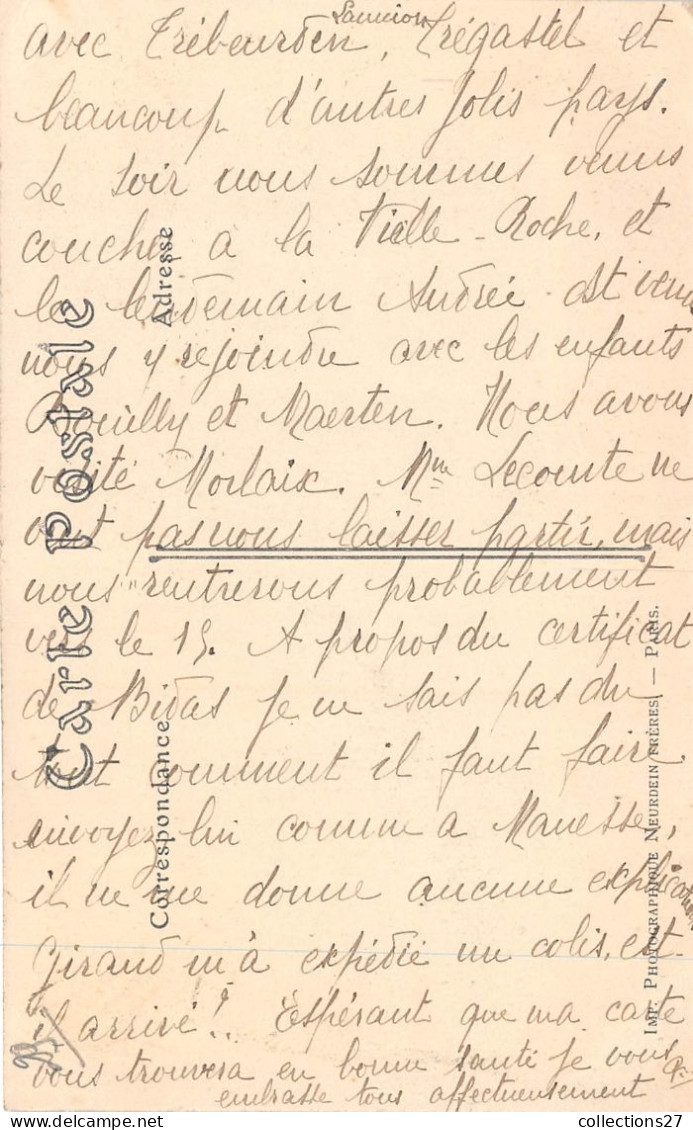 Lannion
avec Trébeurden, Trégastel et
beaucoup d'autres jolis pays.
Le soir nous sommes venus
coucher à la Vieille-Roche, et
le lendemain Andrée est venue
nous y rejoindre avec les enfants
Bouilly et Maerten. Nous avons
visité Morlaix. Mme Lecomte ne
veut pas nous laisser partir, mais
nous rentrerons probablement
vers le 15. A propos du certificat
de Bidas je ne sais pas du
tout comment il faut faire
envoyez lui comme à Manesse,
il ne me donne aucune explication
Giraud m'a expédié un colis, est-
il arrivé?.. Espérant que ma carte
vous trouvera en bonne santé je vous
embrasse tous affectueusement
Carte Postale
Correspondance
Adresse
IMP. PHOTOGRAPHIQUE NEURDEIN FRÈRES. — PARIS.
collections27